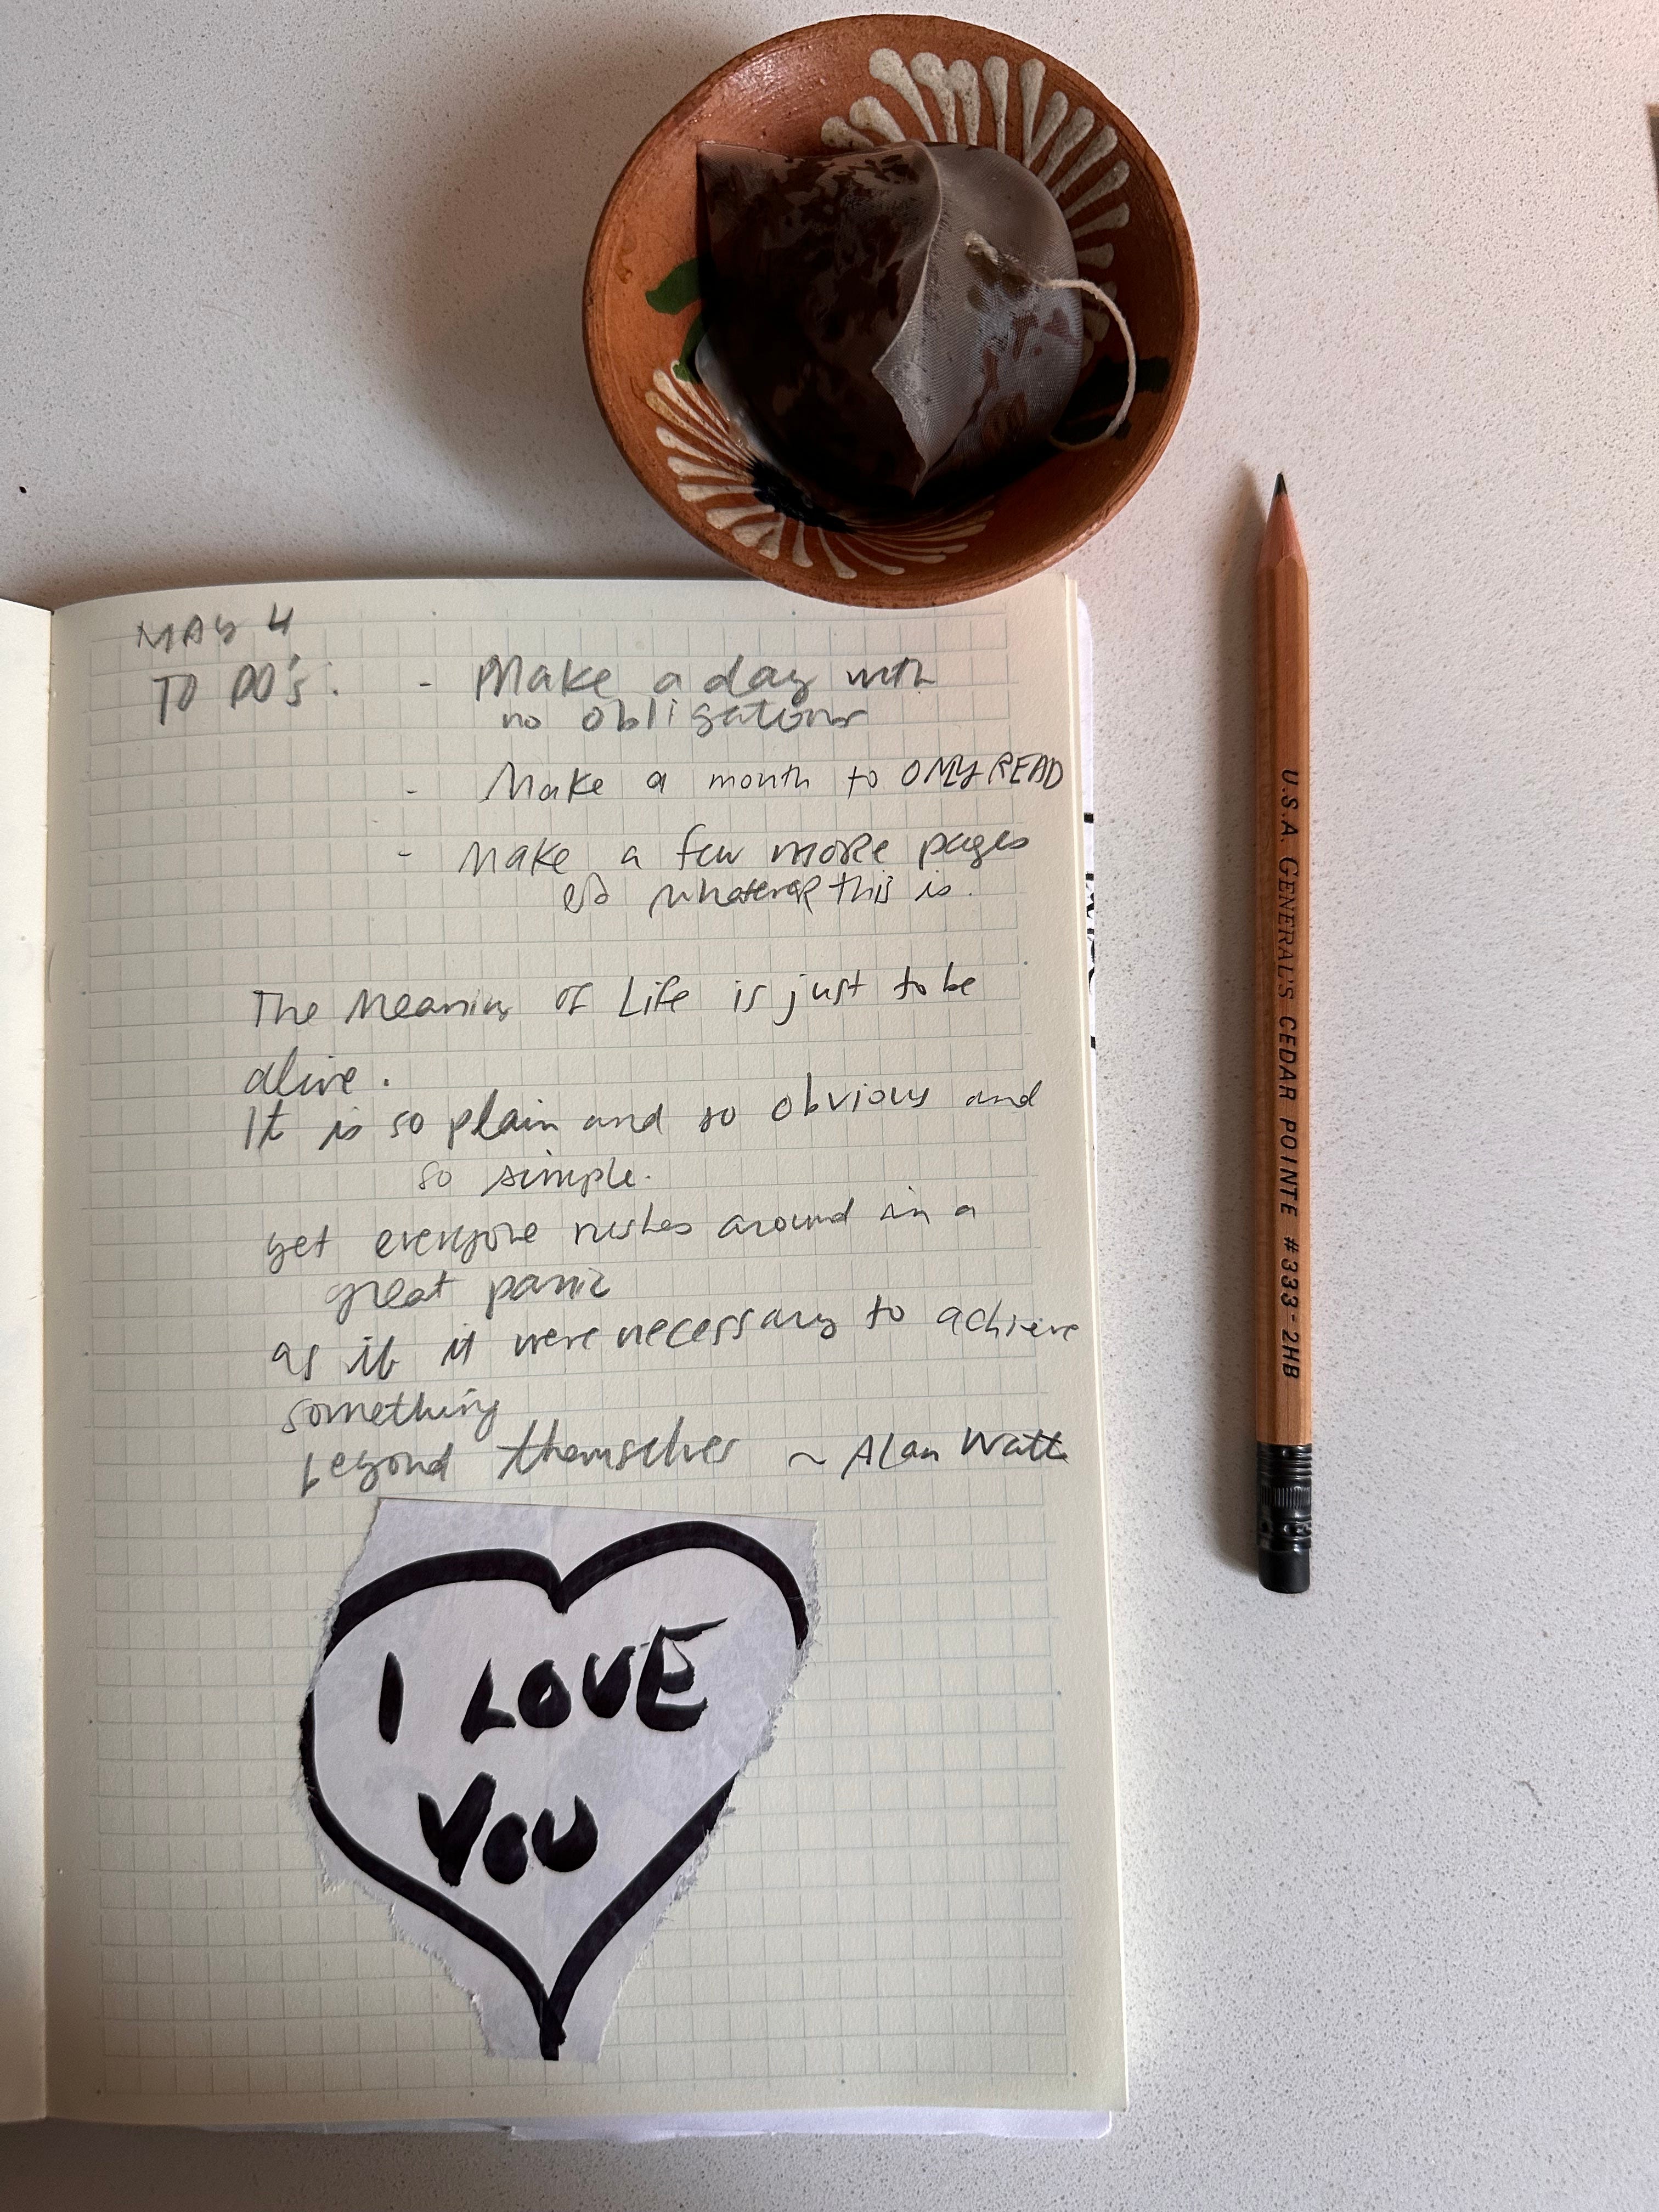 MAY 4
TO DO's: - Make a day with
no obligations
- Make a month to ONLY READ
- Make a few more pages
of whatever this is.
The Meaning of Life is just to be
alive.
It is so plain and so obvious and
so simple.
yet everyone rushes around in a
great panic
as if it were necessary to achieve
something
beyond themselves ~ Alan Watts
I LOVE
YOU
U.S.A. GENERAL'S CEDAR POINTE #333-2HB